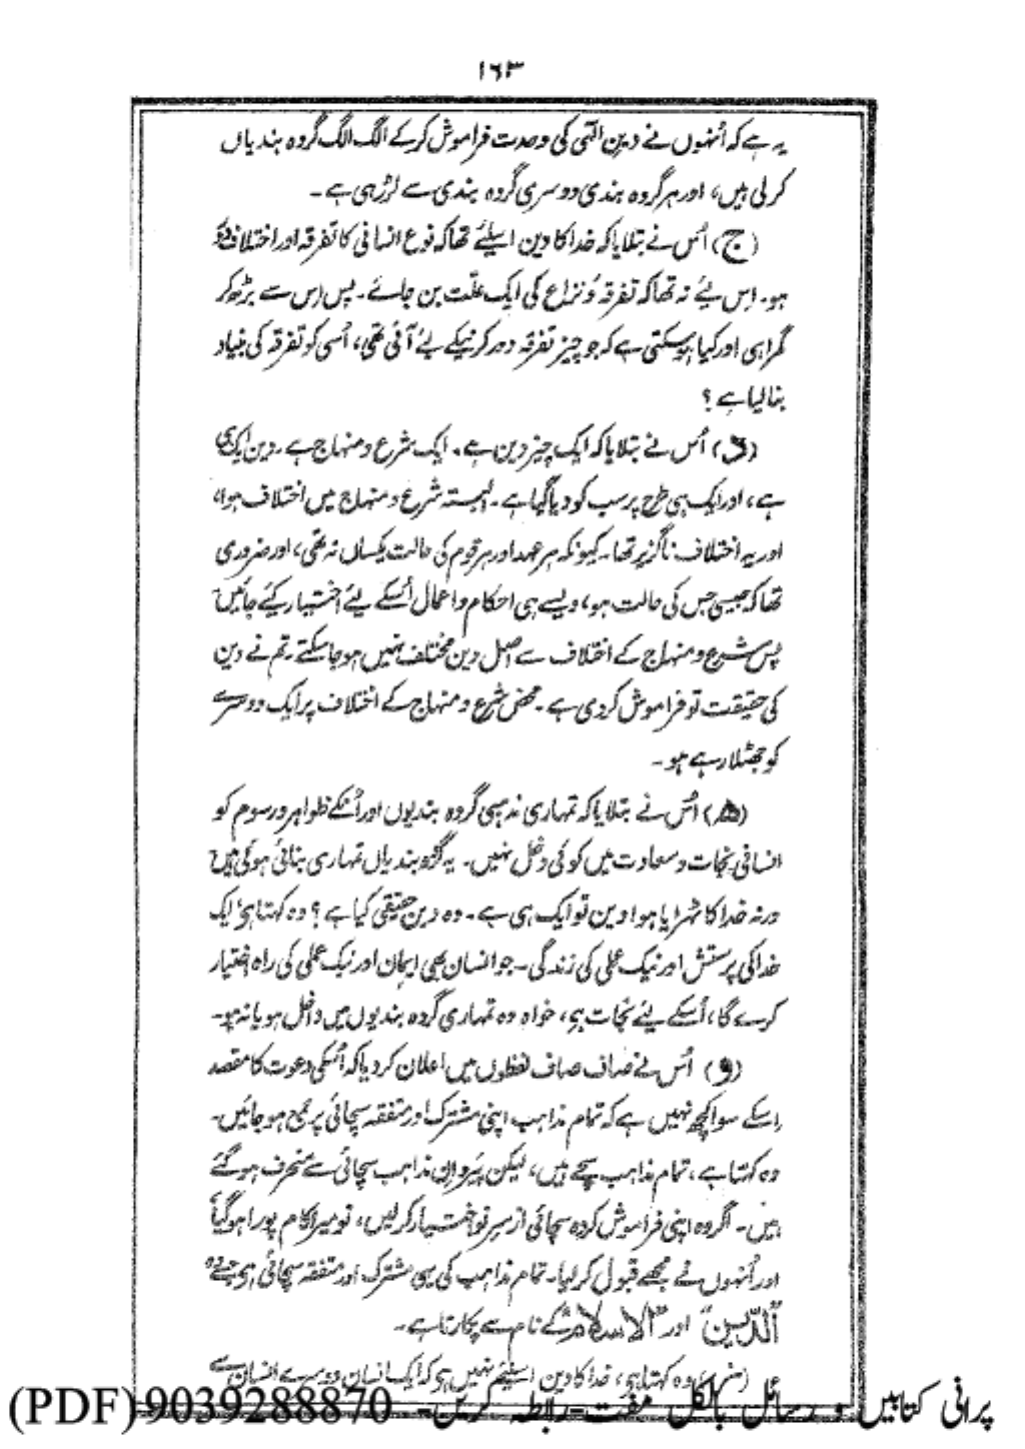 ۱۶۳
یہ ہے کہ اُنہوں نے دین الٰہی کی وحدت فراموش کرکے الگ الگ گروہ بندیاں
کرلی ہیں، اور ہر گروہ بندی دوسری گروہ بندی سے لڑ رہی ہے۔
(ج) اُس نے بتلایا کہ خدا کا دین اسلئے تھا کہ نوع انسانی کا تفرقہ اور اختلاف دور
ہو۔ اِس لئے نہ تھا کہ تفرقہ و نزاع کی ایک علّت بن جائے۔ پس اِس سے بڑھ کر
گمراہی اور کیا ہوسکتی ہے کہ جو چیز تفرقہ دور کرنیکے لئے آئی تھی، اُسی کو تفرقہ کی بنیاد
بنالیا ہے؟
(د) اُس نے بتلایا کہ ایک چیز دین ہے۔ ایک شرع و منہاج ہے۔ دین ایک ہی
ہے، اور ایک ہی طرح پر سب کو دیا گیا ہے۔ البتہ شرع و منہاج میں اختلاف ہوا،
اور یہ اختلاف ناگزیر تھا۔ کیونکہ ہر عہد اور ہر قوم کی حالت یکساں نہ تھی، اور ضروری
تھا کہ جیسی جس کی حالت ہو، ویسے ہی احکام و اعمال اُسکے لئے اختیار کیئے جائیں۔
پس شرع و منہاج کے اختلاف سے اصل دین مختلف نہیں ہوجاسکتے۔ تم نے دین
کی حقیقت تو فراموش کردی ہے۔ محض شرع و منہاج کے اختلاف پر ایک دوسرے
کو جھٹلا رہے ہو۔
(ہ) اُس نے بتلایا کہ تمہاری مذہبی گروہ بندیوں اور اُنکے ظواہر و رسوم کو
انسانی نجات و سعادت میں کوئی دخل نہیں۔ یہ گروہ بندیاں تمہاری بنائی ہوئی ہیں۔
ورنہ خدا کا ٹھہرایا ہوا دین تو ایک ہی ہے۔ وہ دین حقیقی کیا ہے؟ وہ کہتا ہے، ایک
خدا کی پرستش اور نیک عملی کی زندگی۔ جو انسان بھی ایمان اور نیک عملی کی راہ اختیار
کرے گا، اُسکے لئے نجات ہے، خواہ وہ تمہاری گروہ بندیوں میں داخل ہو یا نہ ہو۔
(و) اُس نے صاف صاف لفظوں میں اعلان کردیا کہ اُسکی دعوت کا مقصد
اِسکے سوا کچھ نہیں ہے کہ تمام مذاہب اپنی مشترک اور متفقہ سچائی پر جمع ہوجائیں۔
وہ کہتا ہے، تمام مذاہب سچے ہیں، لیکن پیروانِ مذاہب سچائی سے منحرف ہوگئے
ہیں۔ اگر وہ اپنی فراموش کردہ سچائی از سرِ نو اختیار کرلیں، تو میرا کام پورا ہوگیا
اور اُنہوں نے مجھے قبول کرلیا۔ تمام مذاہب کی یہی مشترک اور متفقہ سچائی ہے جسے وہ
"اَلدّین" اور "الاسلام" کے نام سے پکارتا ہے۔
وہ کہتا ہے، خدا کا دین اسلئے نہیں ہے کہ ایک انسان دوسرے انسان سے
پرانی کتابیں و رسائل بالکل مفت - رابطہ کریں - 9039288870 (PDF)